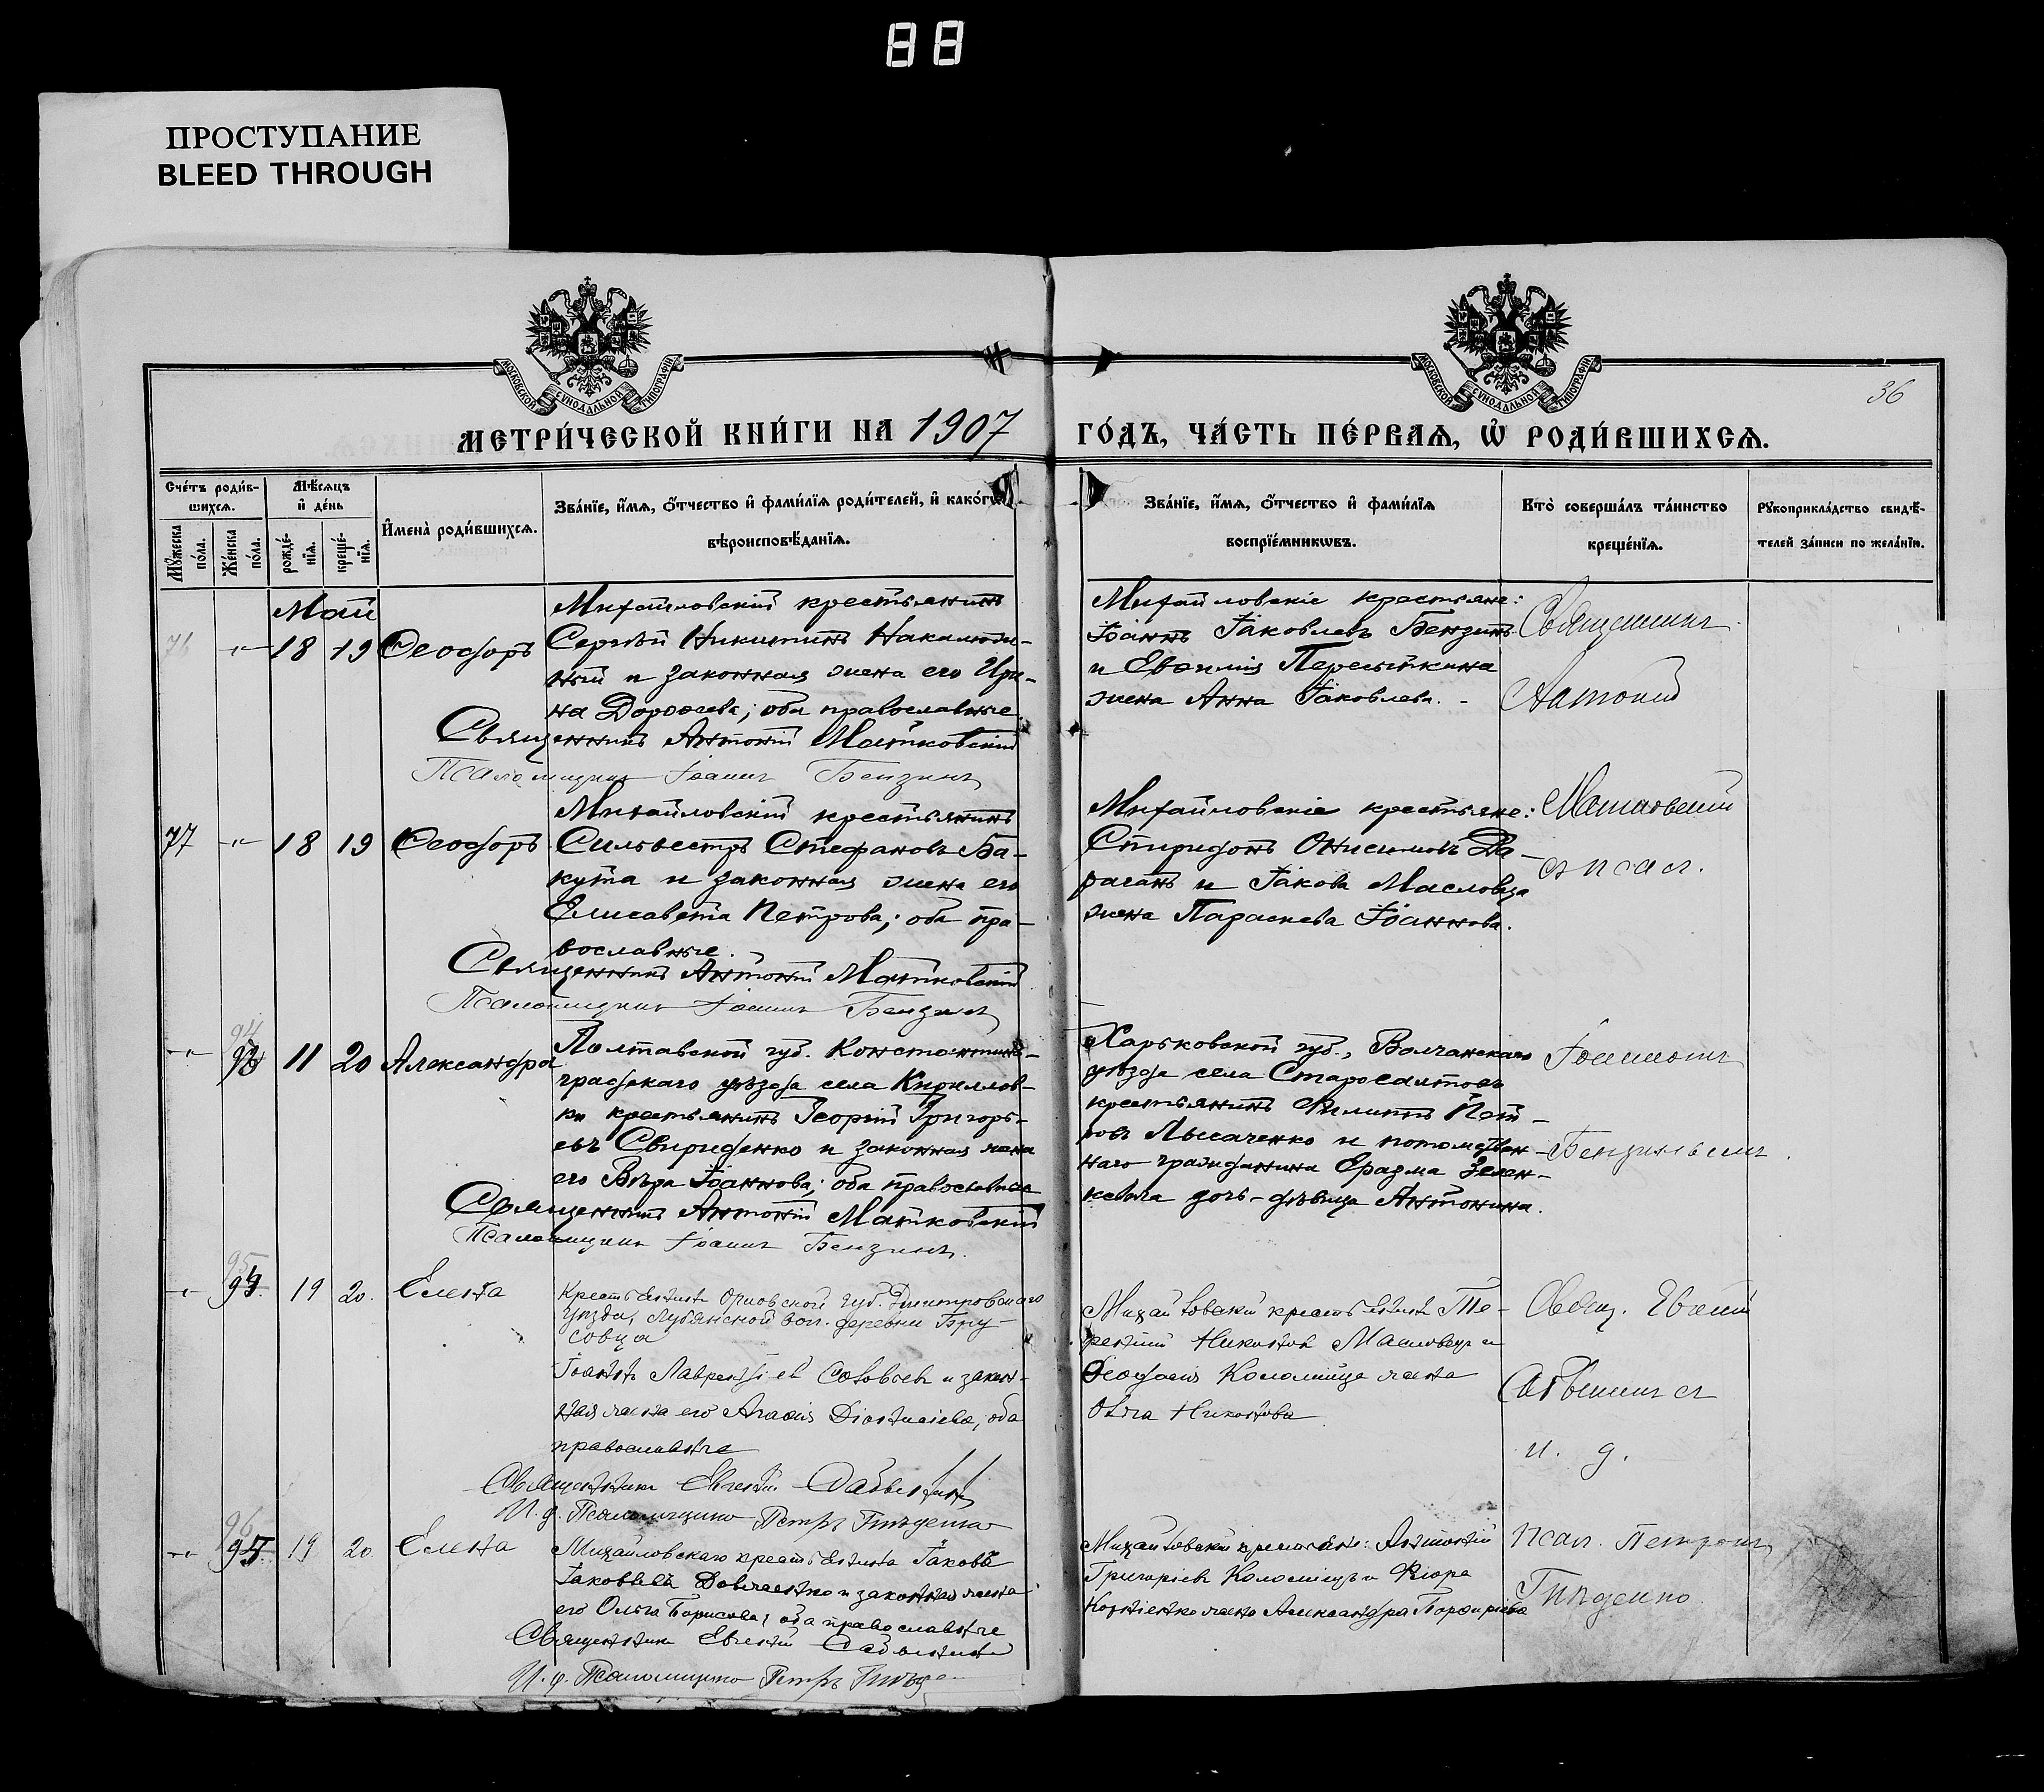 88
ПРОСТУПАНИЕ
BLEED THROUGH
МОСКОВСКОЙ СѴНОДАЛЬНОЙ ТИПОГРАФІИ
МОСКОВСКОЙ СѴНОДАЛЬНОЙ ТИПОГРАФІИ
36
МЕТРИ́ЧЕСКОЙ КНИ́ГИ НА 1907 ГО́ДЪ, ЧА́СТЬ ПЕ́РВАѦ, Ѡ҆ РОДИ́ВШИХСѦ.
Сче́тъ роди́в-
шихсѧ.
Мѣ́сѧцъ
и҆ де́нь
Мꙋ́жеска
по́ла.
Же́нска
по́ла.
рожде́-
нїѧ.
креще́-
нїѧ.
И҆мена̀ роди́вшихсѧ.
Зва́нїе, и҆́мѧ, ѻ҆́тчество и҆ фами́лїѧ роди́телей, и҆ како́гѡ
вѣроисповѣ́данїѧ.
Зва́нїе, и҆́мѧ, ѻ҆́тчество и҆ фами́лїѧ
воспрїе́мникѡвъ.
Кто̀ соверша́лъ та́инство
креще́нїѧ.
Рꙋкоприкла́дство свидѣ́-
телей за́писи по жела́нїю.
Май
76 -"- 18 19 Ѳеодоръ
Михайловскій крестьянинъ
Сергѣй Никитинъ Накалюж-
ный и законная жена его Ири-
на Дороѳеева; оба православные.
Священникъ Антоній Матковскій
Псаломщикъ Іоаннъ Бензинъ
Михайловскіе крестьяне:
Іоаннъ Іаковлевъ Бензинъ
и Евѳимія Перепёлкина
жена Анна Іаковлева. -
Священникъ
Антоній
77 -"- 18 19 Ѳеодоръ
Михайловскій крестьянинъ
Сильвестръ Стефановъ Ба-
кута и законная жена его
Елисавета Петрова; оба пра-
вославные.
Священникъ Антоній Матковскій
Псаломщикъ Іоаннъ Бензинъ
Михайловскіе крестьяне:
Спиридонъ Онисимовъ Да-
раганъ и Іакова Масловца
жена Параскева Іоаннова.
Матковскій
съ псал.
94
-"- 93 11 20 Александра
Полтавской губ. Константино-
градскаго уѣзда села Кириллов-
ки крестьянинъ Георгій Григорь-
евъ Свириденко и законная жена
его Вѣра Іоаннова; оба православные
Священникъ Антоній Матковскій
Псаломщикъ Іоаннъ Бензинъ.
Харьковской губ., Волчанскаго
уѣзда села Старосалтова
крестьянинъ Филиппъ Пет-
ровъ Лысаченко и потомствен-
наго гражданина Еразма Зелен-
кевича дочь-дѣвица Антонина.
Іоанномъ
Бензинымъ.
95
-"- 94. 19 20. Елена
Крестьянинъ Орловской губ. Дмитровскаго
уѣзда, Лубянской вол. деревни Бру-
совца
Іоаннъ Лаврентьевъ Соловьевъ и закон-
ная жена его Агаѳія Діонисіева, оба
православные
Священникъ Евгеній Савынинъ
И. д. Псаломщика Петръ Гнѣденко
Михайловскій крестьянинъ Те-
рентій Никоновъ Масловецъ и
Ѳеодосія Коломійца жена
Ольга Никонова
Свящ. Евгеній
и. д.
96
-"- 95. 19 20. Елена
Михайловскаго крестьянина Іаковъ
Іаковлевъ Довженко и законная жена
его Ольга Борисова, оба православные
Священникъ Евгеній
И. д. Псаломщика Петръ Гнѣде
Григоріевъ Коломіецъ и
Корніенко жена Александра Порфиріева
псал. Петромъ
Гнѣденко.